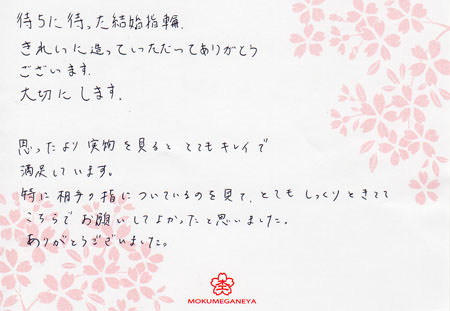 待ちに待った結婚指輪、
きれいに造っていただってありがとう
ございます。
大切にします。
思ったより実物を見ると とてもキレイで
満足しています。
特に相手の指についているのを見て、とても しっくりときてて
こちらで お願いしてよかったと思いました。
ありがとうございました。
MOKUMEGANEYA